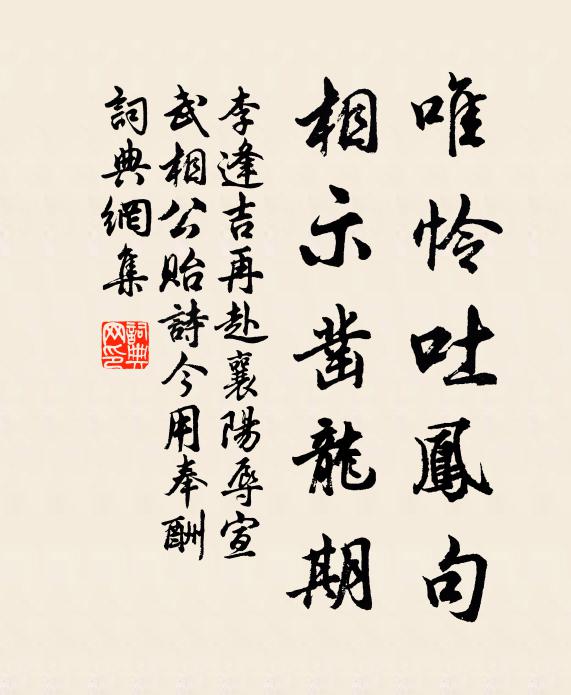 唯怜吐鳳句
相示凿龍期
李逢吉再赴襄陽辱宣
武相公貽詩今用奉酬
詞典網集
詞典網印